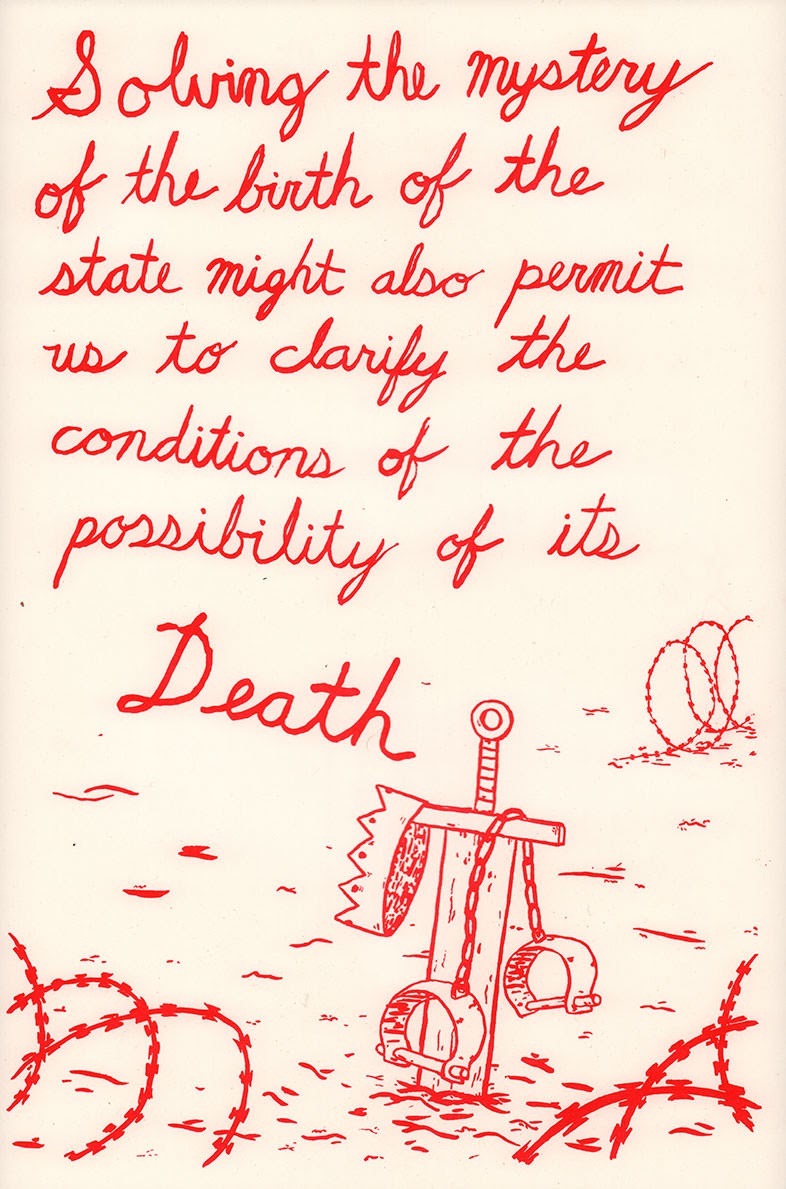 Solving the mystery
of the birth of the
state might also permit
us to clarify the
conditions of the
possibility of its
Death